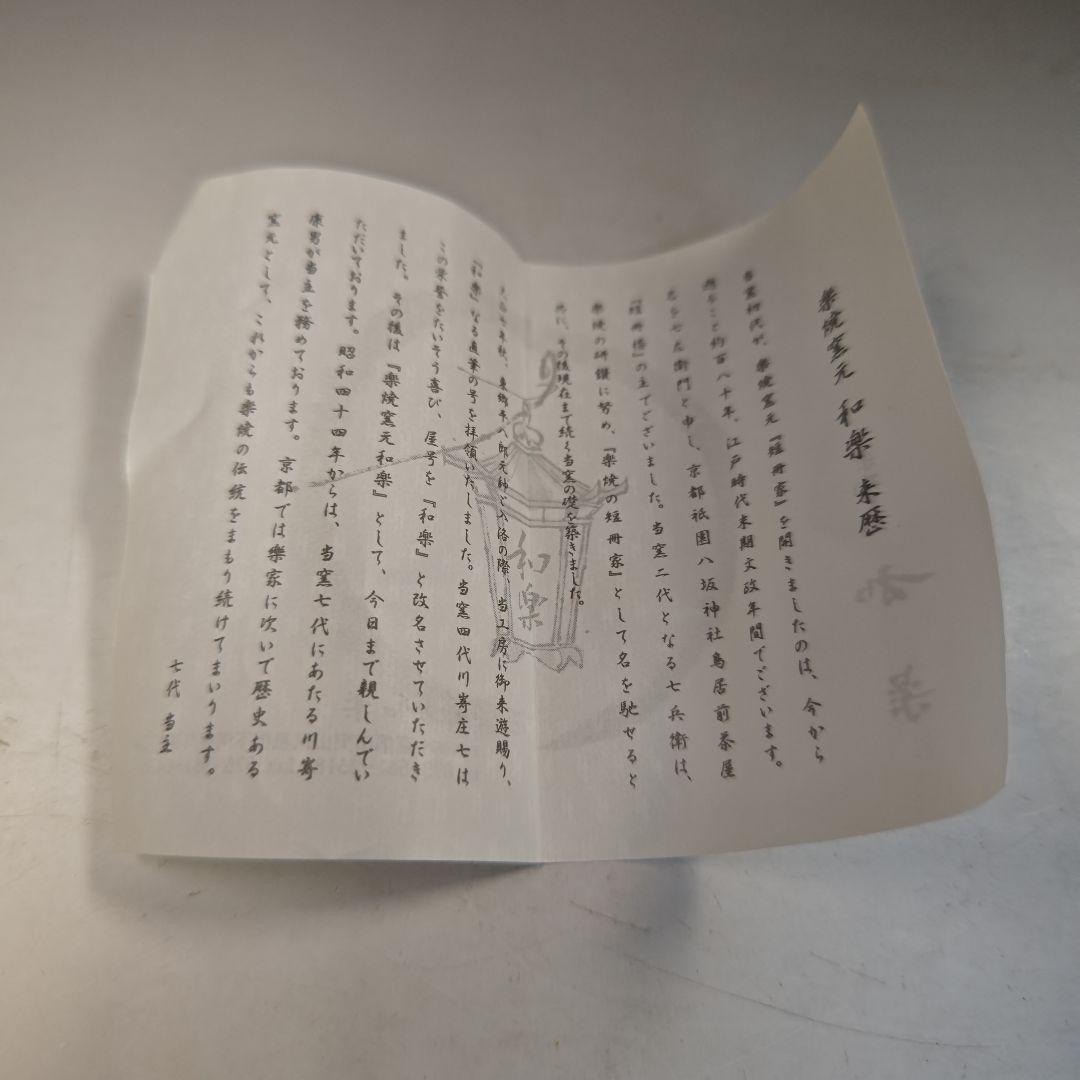 楽焼窯元 和楽 来歴
当窯初代が、楽焼窯元『短冊家』を開きましたのは、今から
遡ること約百八十年、江戸時代末期文政年間でございます。
七左衛門と申し、京都祇園八坂神社鳥居前茶屋
の主でございました。当窯二代となる七兵衛は、
楽焼の研鑽に努め、『楽焼の短冊家』として名を馳せると
共に、その後現在まで続く当窯の礎を築きました。
年秋、東郷平八郎元帥ど入洛の際、当工房に御来遊賜り、
『和楽』なる直筆の号を拝領いたしました。当窯四代川嵜庄七は
この栄誉をたいそう喜び、屋号を『和楽』と改名させていただき
ました。その後は『楽焼窯元和楽』として、今日まで親しんでい
ただいております。昭和四十四年からは、当窯七代にあたる川嵜
康男が当主を務めております。京都では樂家に次いで歴史ある
窯元として、これからも楽焼の伝統をまもり続けてまいります。
七代 当主
和楽